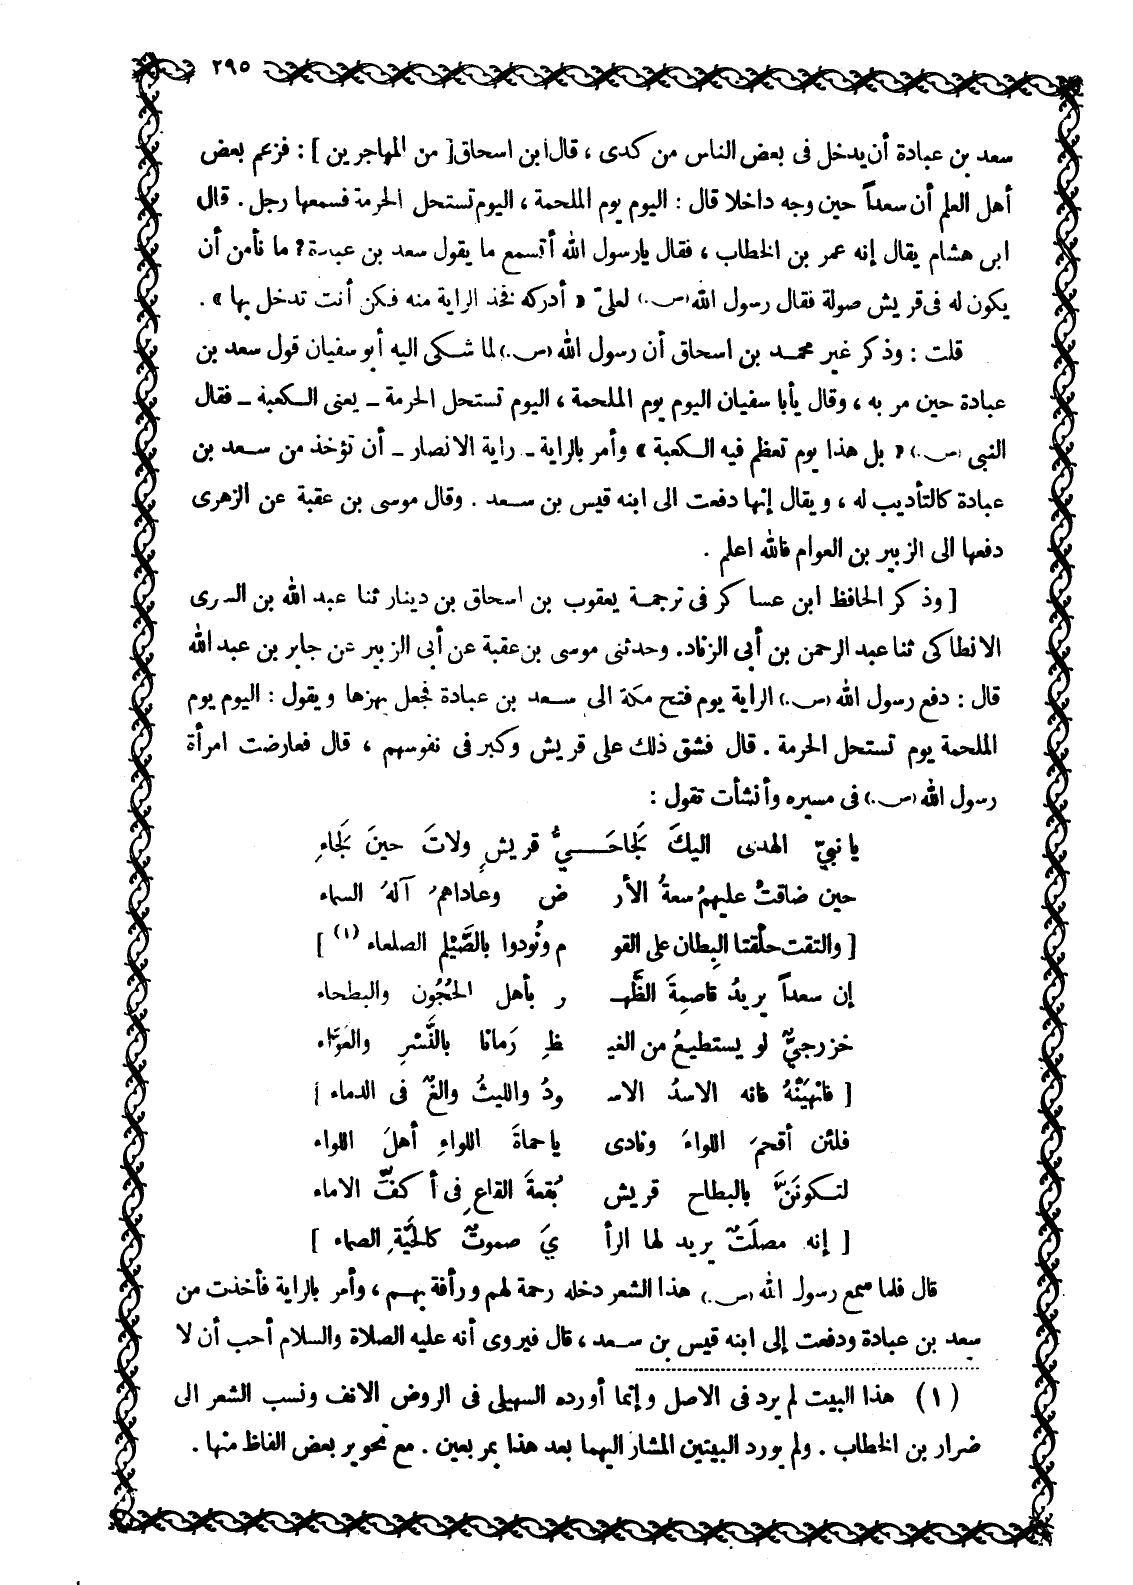 ٢٩٥
سعد بن عبادة أن يدخل فى بعض الناس من كدى ، قال ابن اسحاق [ من المهاجرين ] : فزعم بعض
أهل العلم أن سعداً حين وجه داخلا قال : اليوم يوم الملحمة ، اليوم تستحل الحرمة فسمعها رجل . قال
ابن هشام يقال إنه عمر بن الخطاب ، فقال يارسول الله أتسمع ما يقول سعد بن عبادة ? ما نأمن أن
يكون له فى قريش صولة فقال رسول الله (س.) لعلىّ « أدركه فخذ الراية منه فكن أنت تدخل بها » .
قلت : وذكر غير محمد بن اسحاق أن رسول الله (س.) لما شكى اليه أبو سفيان قول سعد بن
عبادة حين مر به ، وقال يأبا سفيان اليوم يوم الملحمة ، اليوم تستحل الحرمة ـ يعنى الكعبة ـ فقال
النبى (س.) « بل هذا يوم تعظم فيه الكعبة » وأمر بالراية ـ راية الانصار ـ أن تؤخذ من سعد بن
عبادة كالتأديب له ، ويقال إنها دفعت الى ابنه قيس بن سعد . وقال موسى بن عقبة عن الزهرى
دفعها الى الزبير بن العوام فالله اعلم .
[ وذكر الحافظ ابن عساكر فى ترجمة يعقوب بن اسحاق بن دينار ثنا عبد الله بن السرى
الانطاكى ثنا عبد الرحمن بن أبى الزناد. وحدثنى موسى بن عقبة عن أبى الزبير عن جابر بن عبد الله
قال : دفع رسول الله (س.) الراية يوم فتح مكة الى سعد بن عبادة فجعل يهزها ويقول : اليوم يوم
الملحمة يوم تستحل الحرمة . قال فشق ذلك على قريش وكبر فى نفوسهم ، قال فعارضت امرأة
رسول الله (س.) فى مسيره وأنشأت تقول :
يا نبيّ الهدى اليكَ لَجا حَـــيُّ قريشٍ ولاتَ حينَ لَجاءِ
حين ضاقتْ عليهمُ سعةُ الأر ض وعاداهمُ آلهُ السماء
[ والتقت حلْقتا البِطان على القو م ونُودوا بالصَّيْلم الصلعاء (١) ]
إن سعداً يريدُ قاصمةَ الظَّهـ ر بأهل الحُجُون والبطحاء
خزرجيٌّ لو يستطيعُ من الغيـ ظِ رَمانا بالنَّسْرِ والعَوّاء
[ فانْهيَنْهُ فانه الاسدُ الاسـ ودُ والليثُ والغٌ فى الدماء ]
فلئن أقحمَ اللواءَ ونادى ياحماةَ اللواءِ أهلَ اللواء
لتكونَنَّ بالبطاح قريش بُقعةَ القاعِ فى أكفِّ الاماء
[ إنه مصلَتٌ يريد لها الرأ يَ صموتٌ كالحَيَّةِ الصماء ]
قال فلما سمع رسول الله (س.) هذا الشعر دخله رحمة لهم ورأفة بهم ، وأمر بالراية فأخذت من
سعد بن عبادة ودفعت إلى ابنه قيس بن سعد ، قال فيروى أنه عليه الصلاة والسلام أحب أن لا
(١) هذا البيت لم يرد فى الاصل وإنما أورده السهيلى فى الروض الانف ونسب الشعر الى
ضرار بن الخطاب . ولم يورد البيتين المشار اليهما بعد هذا بمربعين . مع تحوير بعض الفاظ منها .